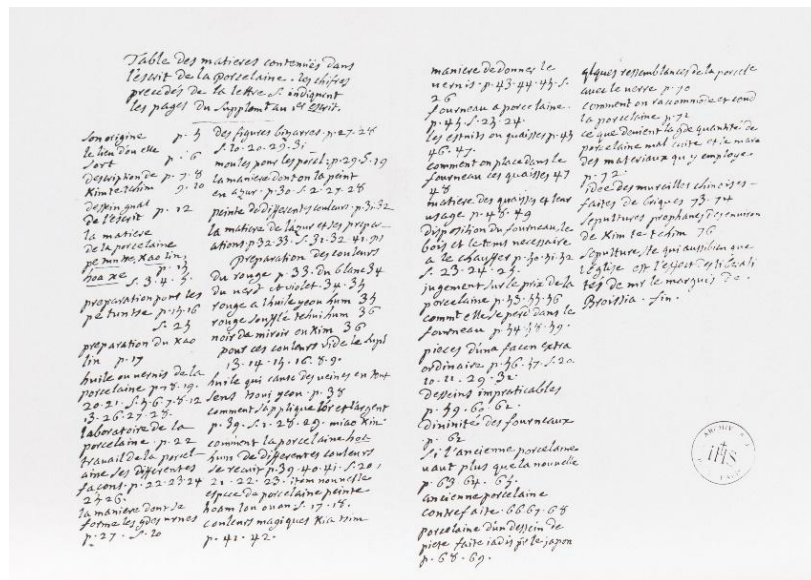 Table des matieres contenuës dans
l'escrit de la porcelaine. les chifres
precedés de la lettre S. indiquent
les pages du supplemt au 1er escrit.
son origine p. 5
le lieu d'ou elle
sort p. 6
description de p. 7. 8
Kimtetchim 9. 10
dessein gnal
de l'escrit p. 12
la matiere
de la porcelaine
pe tuntse, Kao lin,
hoa xe p. 13
S. 3. 4. 5.
preparation pour les
pe tuntse p. 15. 16
S. 25
preparation du Kao
lin p. 17
huile ou vernis de la
porcelaine p. 18. 19.
20. 21. S. 5. 6. 7. 8. 12
13. 26. 27. 28.
laboratoire de la
porcelaine p. 22
travail de la porcel-
aine ses differentes
façons. p. 22. 23. 24
25. 26.
la maniere dont se
forme les gdes urnes
p. 27. S. 20
des figures bizarres. p. 27. 28
S. 10. 20. 29. 31
moules pour les porcel: p. 29. S. 19
la maniere dont on la peint
en azur. p. 30. S. 2. 27. 28
peinte de differentes couleurs. p. 31. 32
la matiere de l'azur et ses prepar-
ations p. 32. 33. S. 31. 32
preparation des couleurs
du rouge p. 33. du blanc 34
du verd et violet. 34. 35
rouge a l'huile yeou hum 35
rouge soufflé tchui hum 36
noir de miroir ou Kim 36
pour ces couleurs vide le supt
13. 14. 15. 16. 8. 9.
huile qui cause des veines en tout
sens tsoui yeou. p. 38
comment s'applique l'or et l'argent
p. 39. S. 1. 28. 29. miao Kin
comment la porcelaine hot-
hum de differentes couleurs
se recuit p. 39. 40. 41. S. 20,
21. 22. 23. item nouvelle
espece de porcelaine peinte
hoam lou ouan. S. 17. 18.
couleurs magiques Kia tsim
p. 41. 42.
maniere de donner le
vernis. p. 43. 44. 45. S.
26
fourneau a porcelaine.
p. 45. S. 23. 24.
les estuits ou quaisses p. 45
46. 47.
comment on place dans le
fourneau ces quaisses 47
48
matiere des quaisses et leur
usage p. 48. 49
disposition du fourneau, le
bois et le tems necessaire
a le chauffer p. 50. 51. 52
S. 23. 24. 25.
jugement sur le prix de la
porcelaine p. 53. 55. 56
commt elle se perd dans le
fourneau p. 54. 58. 59.
pieces d'une façon extra
ordinaire p. 56. 57. S. 20
10. 11. 29. 32.
desseins impraticables
p. 59. 60. 62.
divinité des fourneaux
p. 62
Si l'ancienne porcelaine
vaut plus que la nouvelle
p. 63. 64. 65.
ancienne porcelaine
contrefaite. 66. 67. 68
porcelaine d'un dessein de
pieté faite iadis pr le japon
p. 68. 69.
qlques ressemblances de la porcele
avec le verre p. 70
comment on raccommode et coud
la porcelaine p. 71
ce que devient la gde quantité de
porcelaine mal cuite et le marc
des materiaux qu'y employe
p. 72.
idée des murailles chinoises -
faites de briques 73. 74
Sepultures prophanes des environ
de Kim te tchim 76
Sepulture, ste qui aussi bien que
l'eglise est l'effect des liberali
tés de mr le marquis de.
Broissia. fin.
IHS